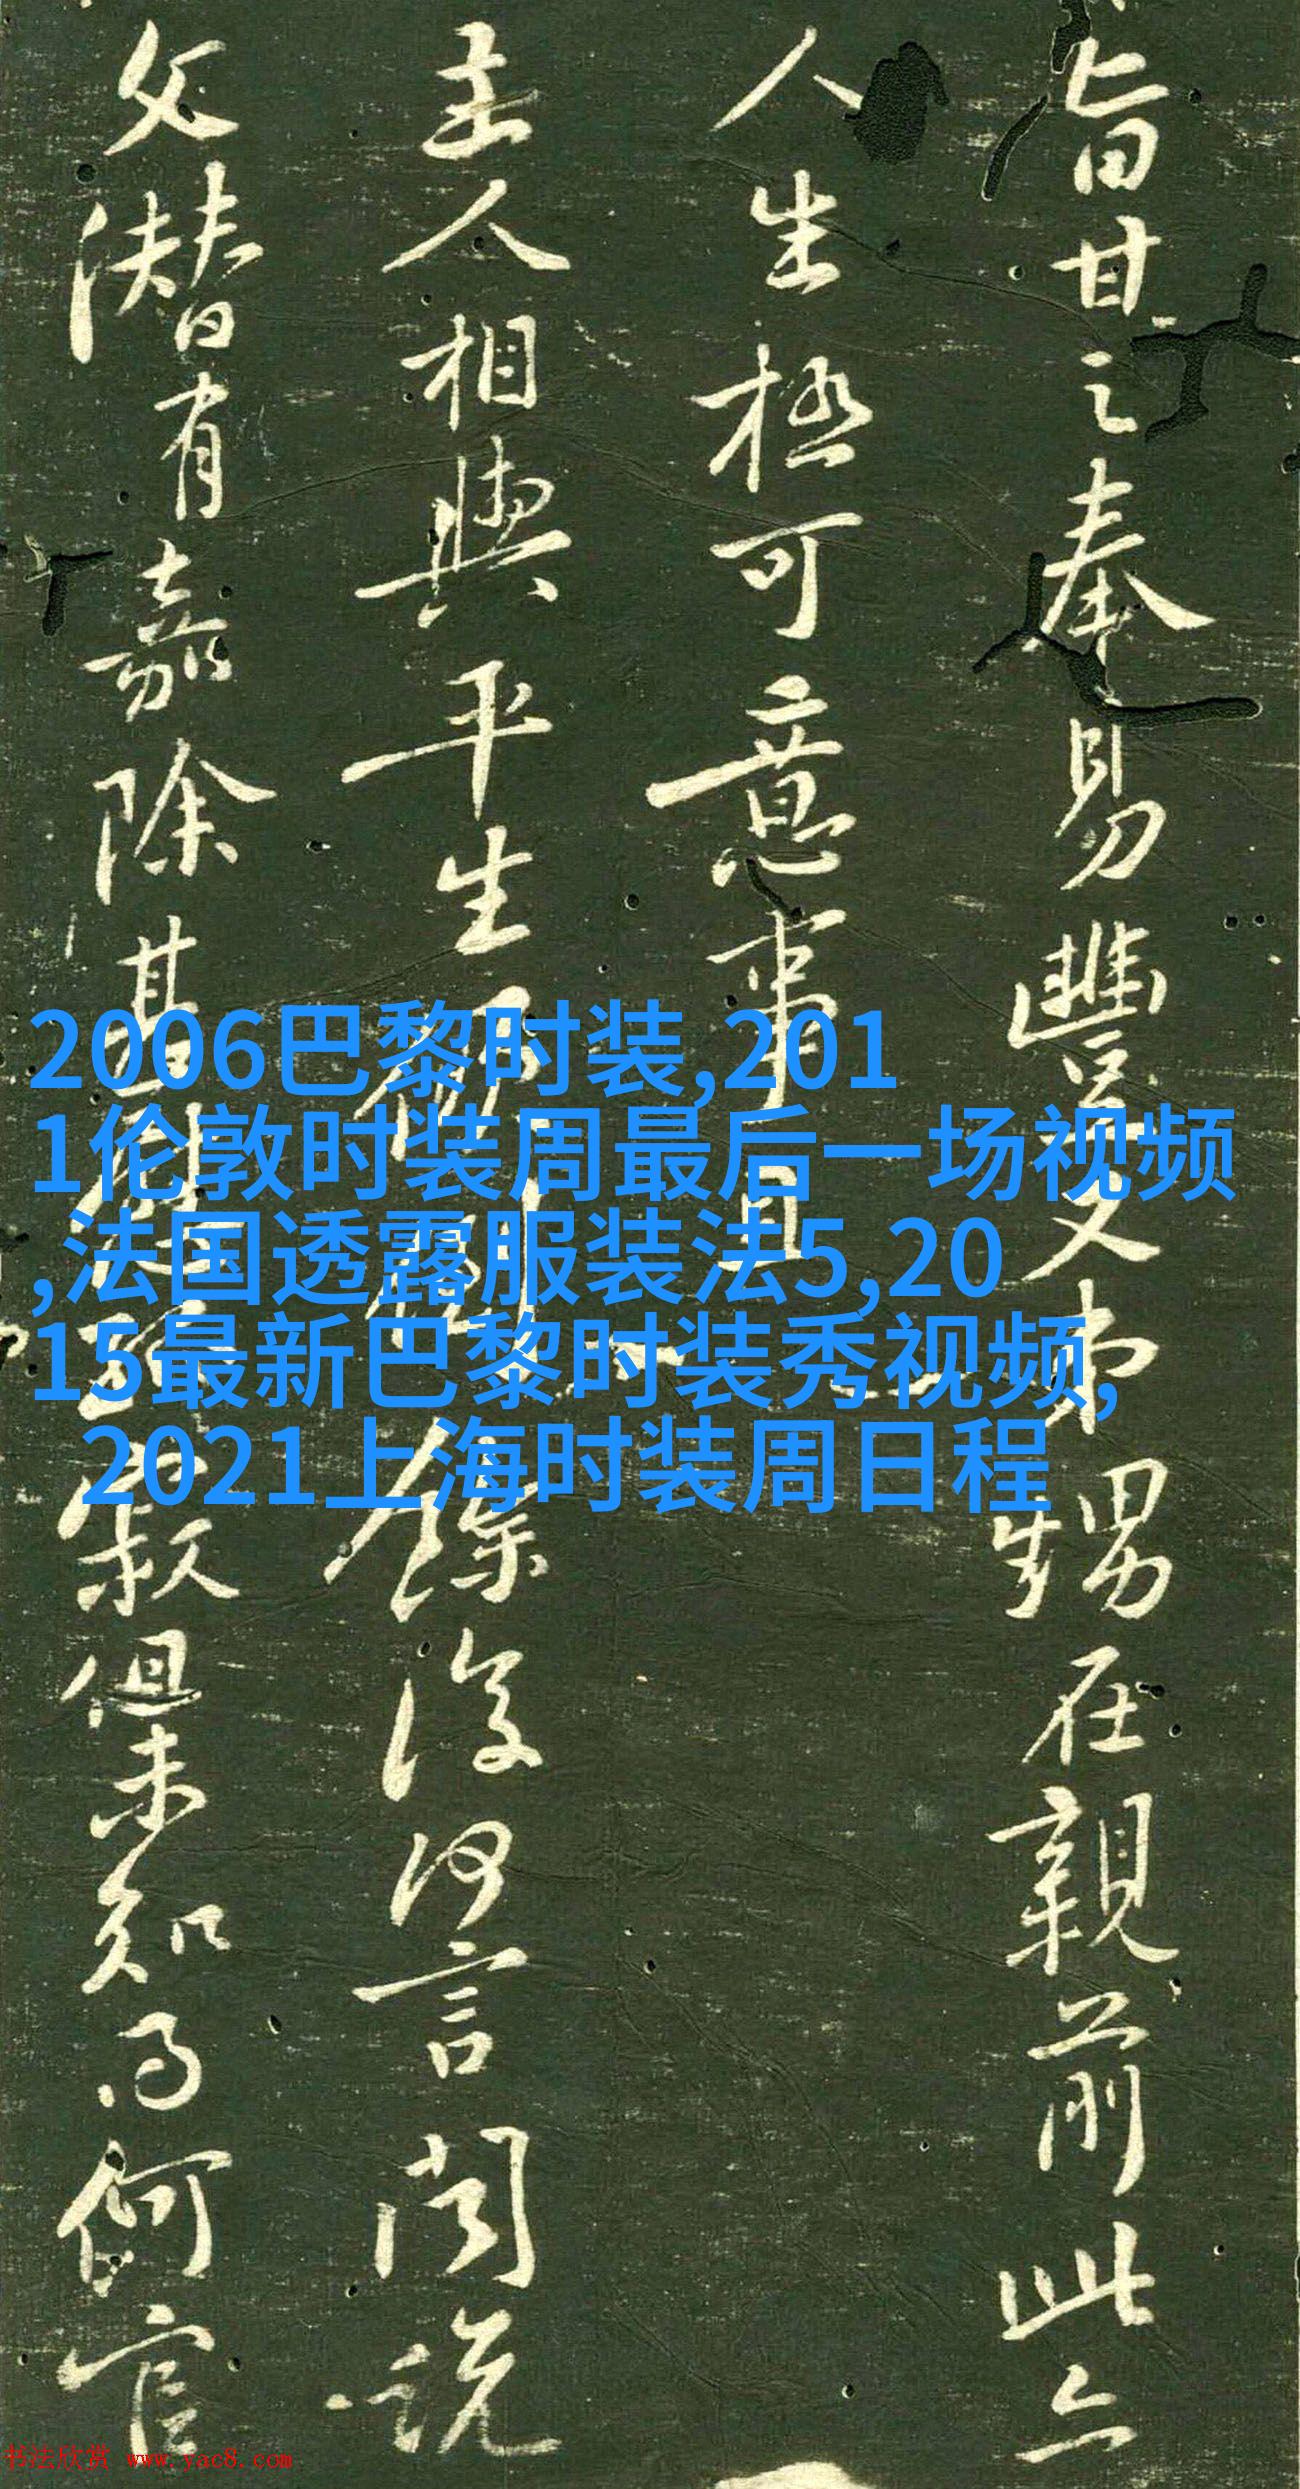 旨甘之奉易豐又弟甥在親前此亦
人生極可意事
主人相與平生餘復何言聞說
父潛有嘉除甚叙但未知得何官
2006巴黎时装,201
1伦敦时装周最后一场视频
,法国透露服装法5,20
15最新巴黎时装秀视频,
2021上海时装周日程
书法欣赏 www.yac8.com